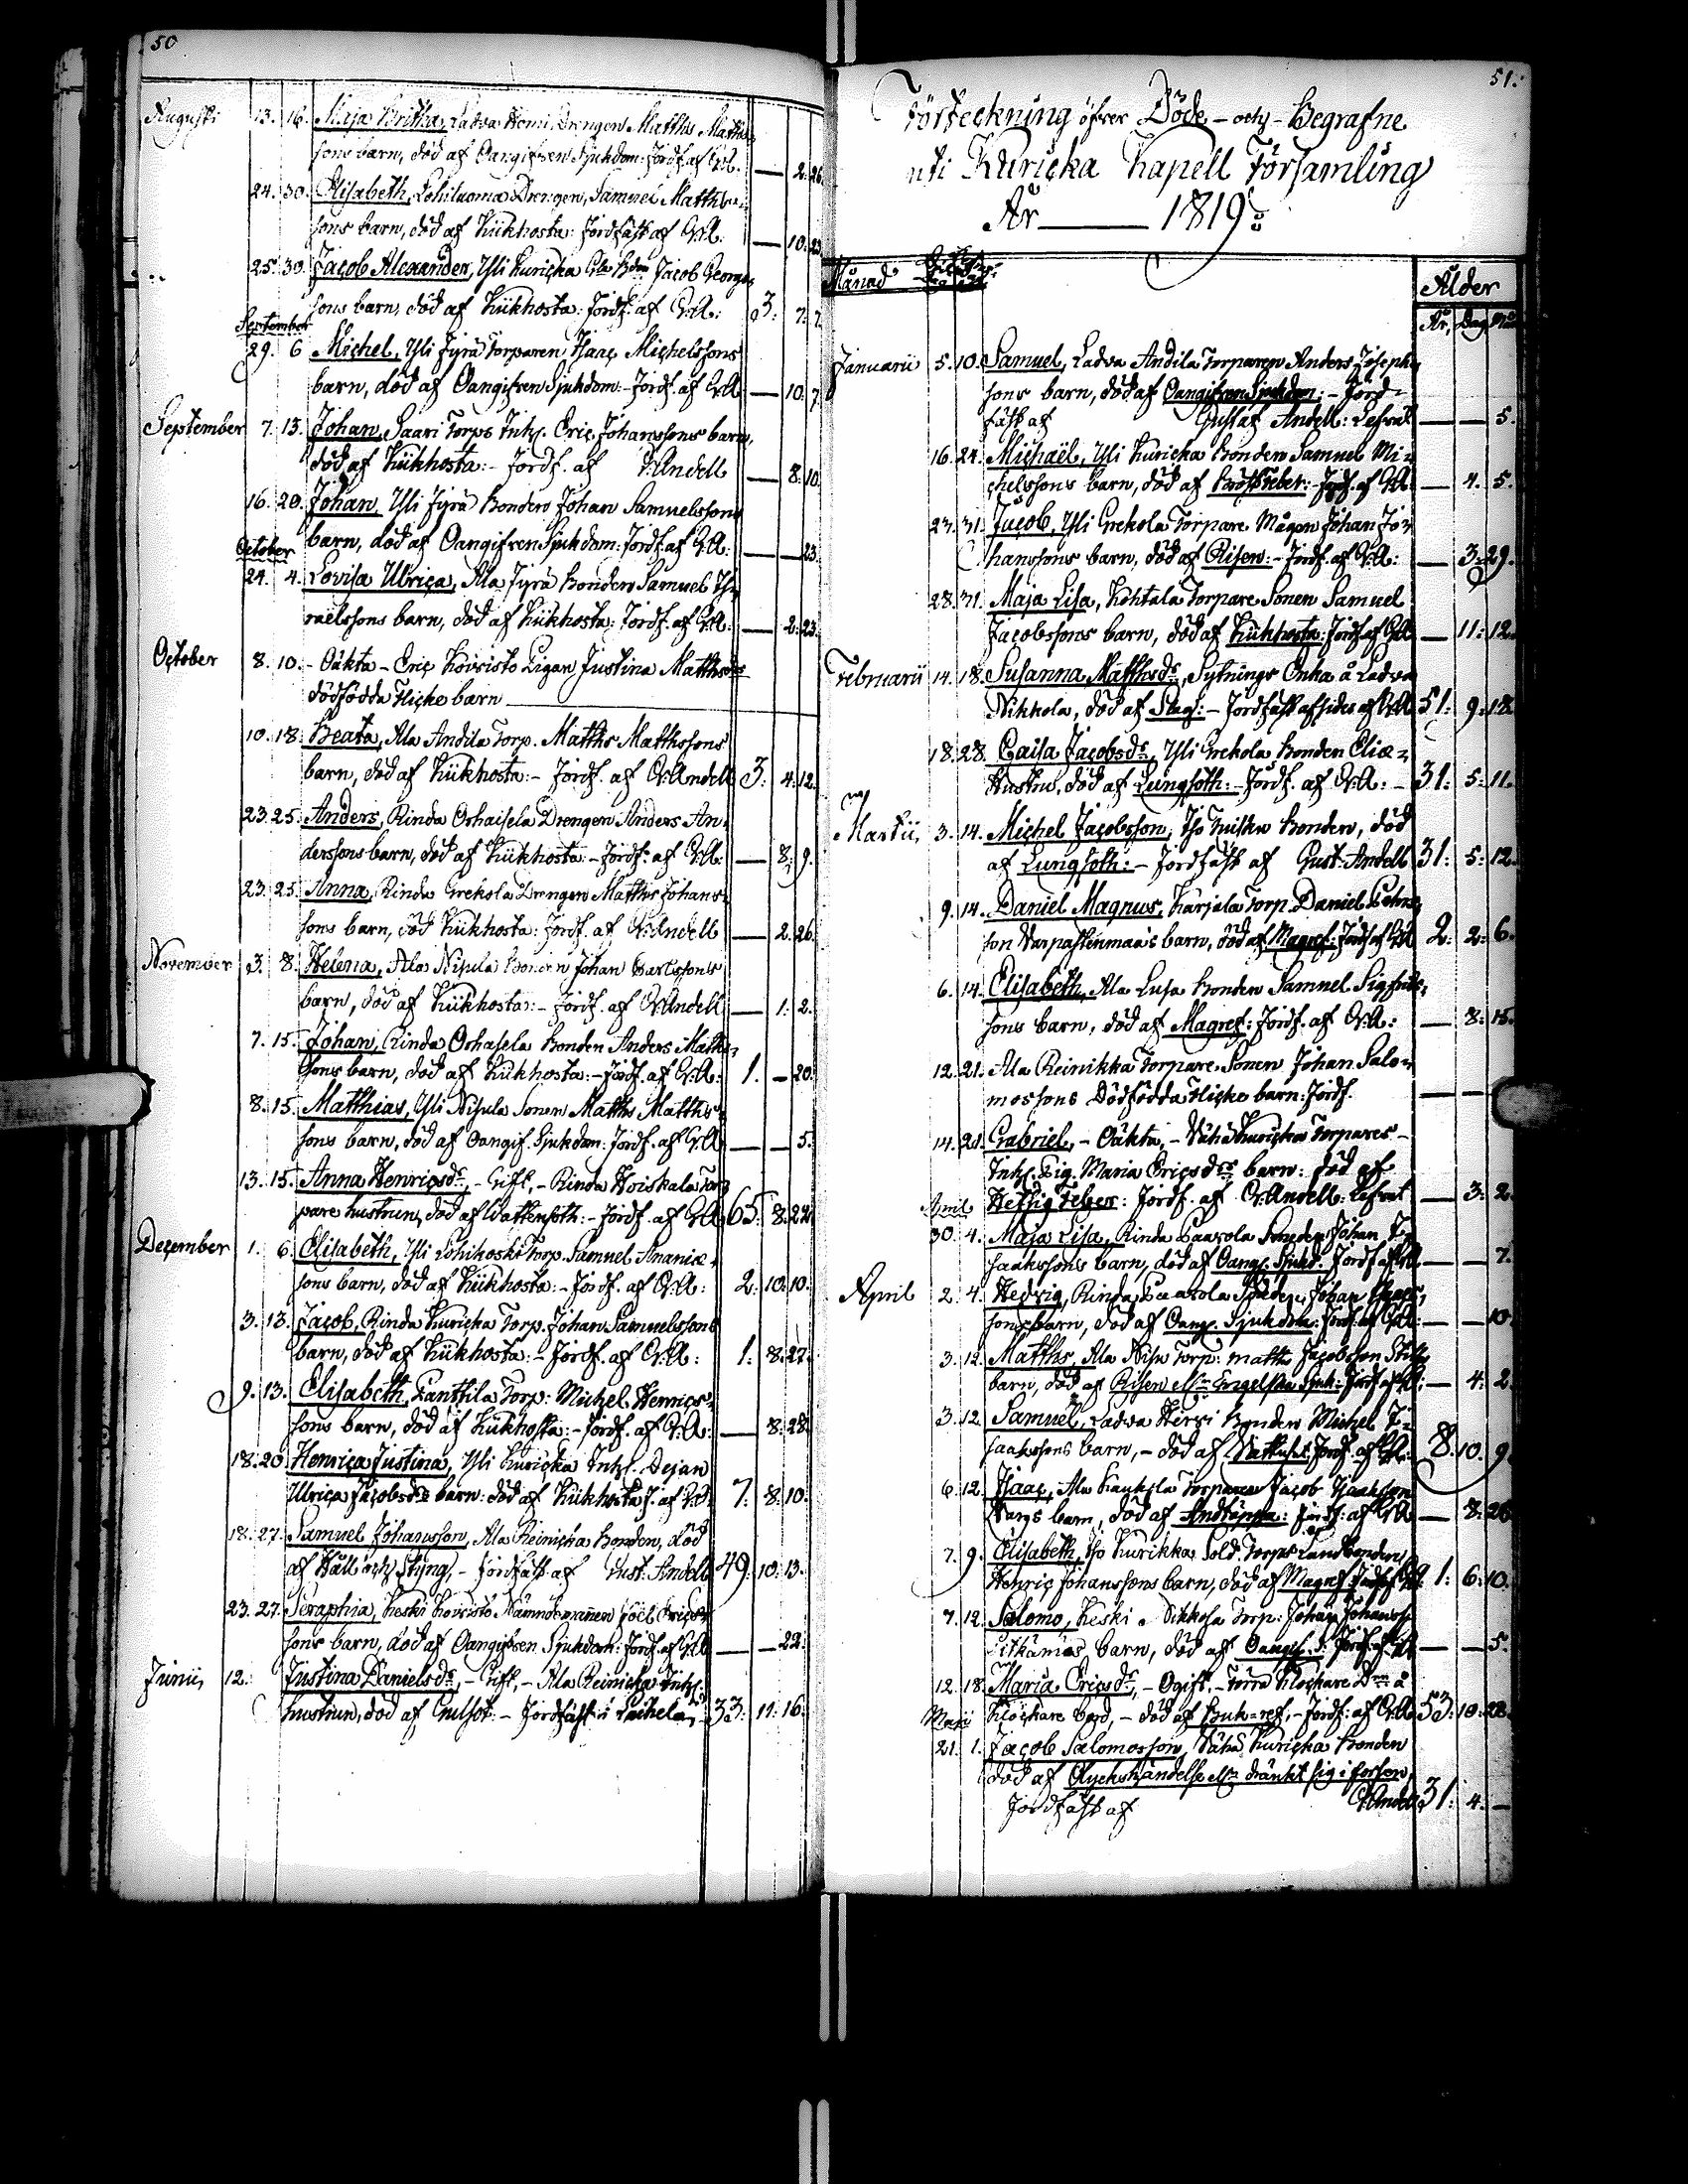 50
Augusti 13. 16. Maja Britha, Ladva Heni Drengen Matths Matths-
sons barn, död af Oangifven Sjukdom: Jordf. af G:A. — 2. 26.
24. 30. Elisabeth, Lohiluoma Drengen, Samuel Matths-
sons barn, död af Kikhosta: Jordfäst af G:A: — 10. 23
25. 30. Jacob Alexander, Yli Kuricka Jacob Georgs-
sons barn, död af Kikhosta: Jordf. af G:A: 3. 7. 7.
September
29. 6 Michel, Yli Jyrä Torparen Isaac Michelssons
barn, död af Oangifven Sjukdom: - Jordf. af G:A — 10. 7.
September 7. 13. Johan, Saari Torps Inhs. Eric Johanssons barn,
död af Kikhosta: - Jordf. af G:Andell — 8. 10.
16. 20. Johan, Yli Jyrä Bonden Johan Samuelssons
barn, död af Oangifven Sjukdom: Jordf. af G:A: — — 23.
October
24. 4. Lovisa Ulrica, Ala Jyrä Bonden Samuel Is-
raëlssons barn, död af Kikhosta: Jordf. af G:A: — 2. 23.
October 8. 10. - Oäkta - Eric Koivisto Pigan Justina Matthsdrs
dödfödda Flicke barn
10. 18. Beata, Ala Andila Torp. Matths Matthssons
barn, död af Kikhosta: - Jordf. af G:Andell 3. 4. 12.
23. 25. Anders, Rinda Orhaisela Drengen Anders An-
derssons barn, död af Kikhosta: - Jordf. af G:A: — 8. 9.
23. 25. Anna, Rinda Grekola Drengen Matths Johans-
sons barn, död Kikhosta: Jordf. af G:Andell — 2. 26.
November 3. 8. Helena, Ala Nisula Bonden Johan Carlssons
barn, död af Kikhosta: - Jordf. af G:Andell — 1. 2.
7. 15. Johan, Rinda Orhasela Bonden Anders Matths-
sons barn, död af Kikhosta: - Jordf. af G:A: 1. — 20.
8. 15. Matthias, Yli Nisula Sonen Matths Matths-
sons barn, död af Oangif. Sjukdom: Jordf. af G:A — — 5.
13. 15. Anna Henricsdr, - Gift, - Rinda Hoiskala Tor-
pare hustrun, död af Vattensoth: - Jordf. af G:A 65. 8. 22.
December 1. 6. Elisabeth, Yli Lohikoski Torp. Samuel Ananiæ-
sons barn, död af Kikhosta: - Jordf. af G:A: 2. 10. 10.
3. 13. Jacob, Rinda Kuricka Torp. Johan Samuelssons
barn, död af Kikhosta: - Jordf. af G:A: 1. 8. 27.
9. 13. Elisabeth, Kanttila Torp: Michel Henrics-
sons barn, död af Kikhosta: - Jordf. af G:A: — 8. 28.
18. 20. Henrica Justina, Yli Kuricka Inhs. Pejan
Ulrica Jacobsdrs barn: död af Kikhosta J. af G:A: 7. 8. 10.
18. 27. Samuel Johansson, Ala Reinicka Bonden, död
af Håll och Styng, - Jordfäst af Gust. Andell 49. 10. 13.
23. 27. Seraphia, Keski Koivisto Nämndemannen Joël Erics-
sons barn, död af Oangifven Sjukdom: Jordf. af G:A — — 22.
Junii 12. Justina Danielsdr, - Gift, - Ala Reinicka Inhs.
hustrun, död af Gulsot: - Jordfäst i Laihela, 33. 11. 16.
51.
Förteckning öfver Döde - och - Begrafne
uti Kuricka Kapell Församling
År — 1819.
Månad Ålder
År, Dag
Januarii 5. 10. Samuel, Ladva Andila Torparen Anders Josephs-
sons barn, död af Oangifven Sjukdom: - Jord-
fäst af Gustaf Andell: Lefvat — — 5.
16. 24. Michaël, Yli Kuricka Bonden Samuel Mi-
chelssons barn, död af Bröstfeber: - Jordf. af G:A — 4. 5.
23. 31. Jacob, Yli Grekola Torpare Mågen Johan Jo-
hanssons barn, död af Risen: - Jordf. af G:A: — 3. 29.
28. 31. Maja Lisa, Kohtala Torpare Sonen Samuel
Jacobssons barn, död af Kikhosta: Jordf. af G:A — 11. 12.
Februarii 14. 18. Susanna Matthsdr, Sytnings Enka å Ladva
Nikkola, död af Slag: - Jordfäst afsides af G:A 51. 9. 18.
18. 28. Caisa Jacobsdr, Yli Grekola Bonden Eliæ-
Hustru, död af Lungsoth: - Jordf. af G:A: - 31. 5. 11.
Martii, 3. 14. Michel Jacobsson, Iso Bonden, död
af Lungsoth: - Jordfäst af Gust: Andell 31. 5. 12.
9. 14. Daniel Magnus, Karjala Torp. Daniel
son Varpastenmaa's barn, död af Magref: Jordf af G:A 2. 2. 6.
6. 14. Elisabeth, Ala Lusa Bonden Samuel Sigfrids-
sons barn, död af Magref: Jordf. af G:A: — 8. 15.
12. 21. Ala Reinikka Torpare Sonen Johan Salo-
mossons Dödfödda Flicke barn: Jordf. — —
14. 21. Gabriel, - Oäkta, - Vähä Kuricka Torpares -
Inhs. Pig. Maria Ericsdrs barn: död af
April Hettig Feber: Jordf. af G:Andell: Lefvat — 3. 2.
30. 4. Maja Lisa, Rinda Paavola Johan I-
saakssons barn, död af Oang. Sjukd. Jordf af G:A — — 7.
April 2. 4. Hedvig, Rinda Paavola Johan Isaacs-
sons barn, död af Oang. Sjukdom: Jordf. af G:A: — — 10
3. 12. Matths, Ala Nisu Torp: Matths Jacobsson
barn, död af Risen eller Engelska Sjuk: Jordf af G:A: — 4. 2.
3. 12. Samuel, Ladva Hirvi Bonden Michel I-
saakssons barn, - död af Jordf. af G:A: 8. 10. 9.
6. 12. Isaac, Ala Torparen Jacob Isaaksson
Vargs barn, död af Andtäppa: Jordf: af G:A — 8. 26
7. 9. Elisabeth, Iso Kurikka Sold. Torps Landbonden
Henric Johanssons barn, död af Magref Jordf. af G:A 1. 6. 10.
7. 12. Salomo, Keski Sikkola Torp: Johan Johanss
barn, död af Oangif. S: Jordf. af G:A — — 5.
12. 18. Maria Ericsdr, - Ogift, - Förra Klockare å
Maji Klockare bord, - död af Buk-ref, - Jordf: af G:A 53. 10. 28.
21. 1. Jacob Salomosson, Vähä Kuricka Bonden
död af Olyckshändelse eller dränkt sig i forsen,
Jordfäst af G:Andell 31. 4. —